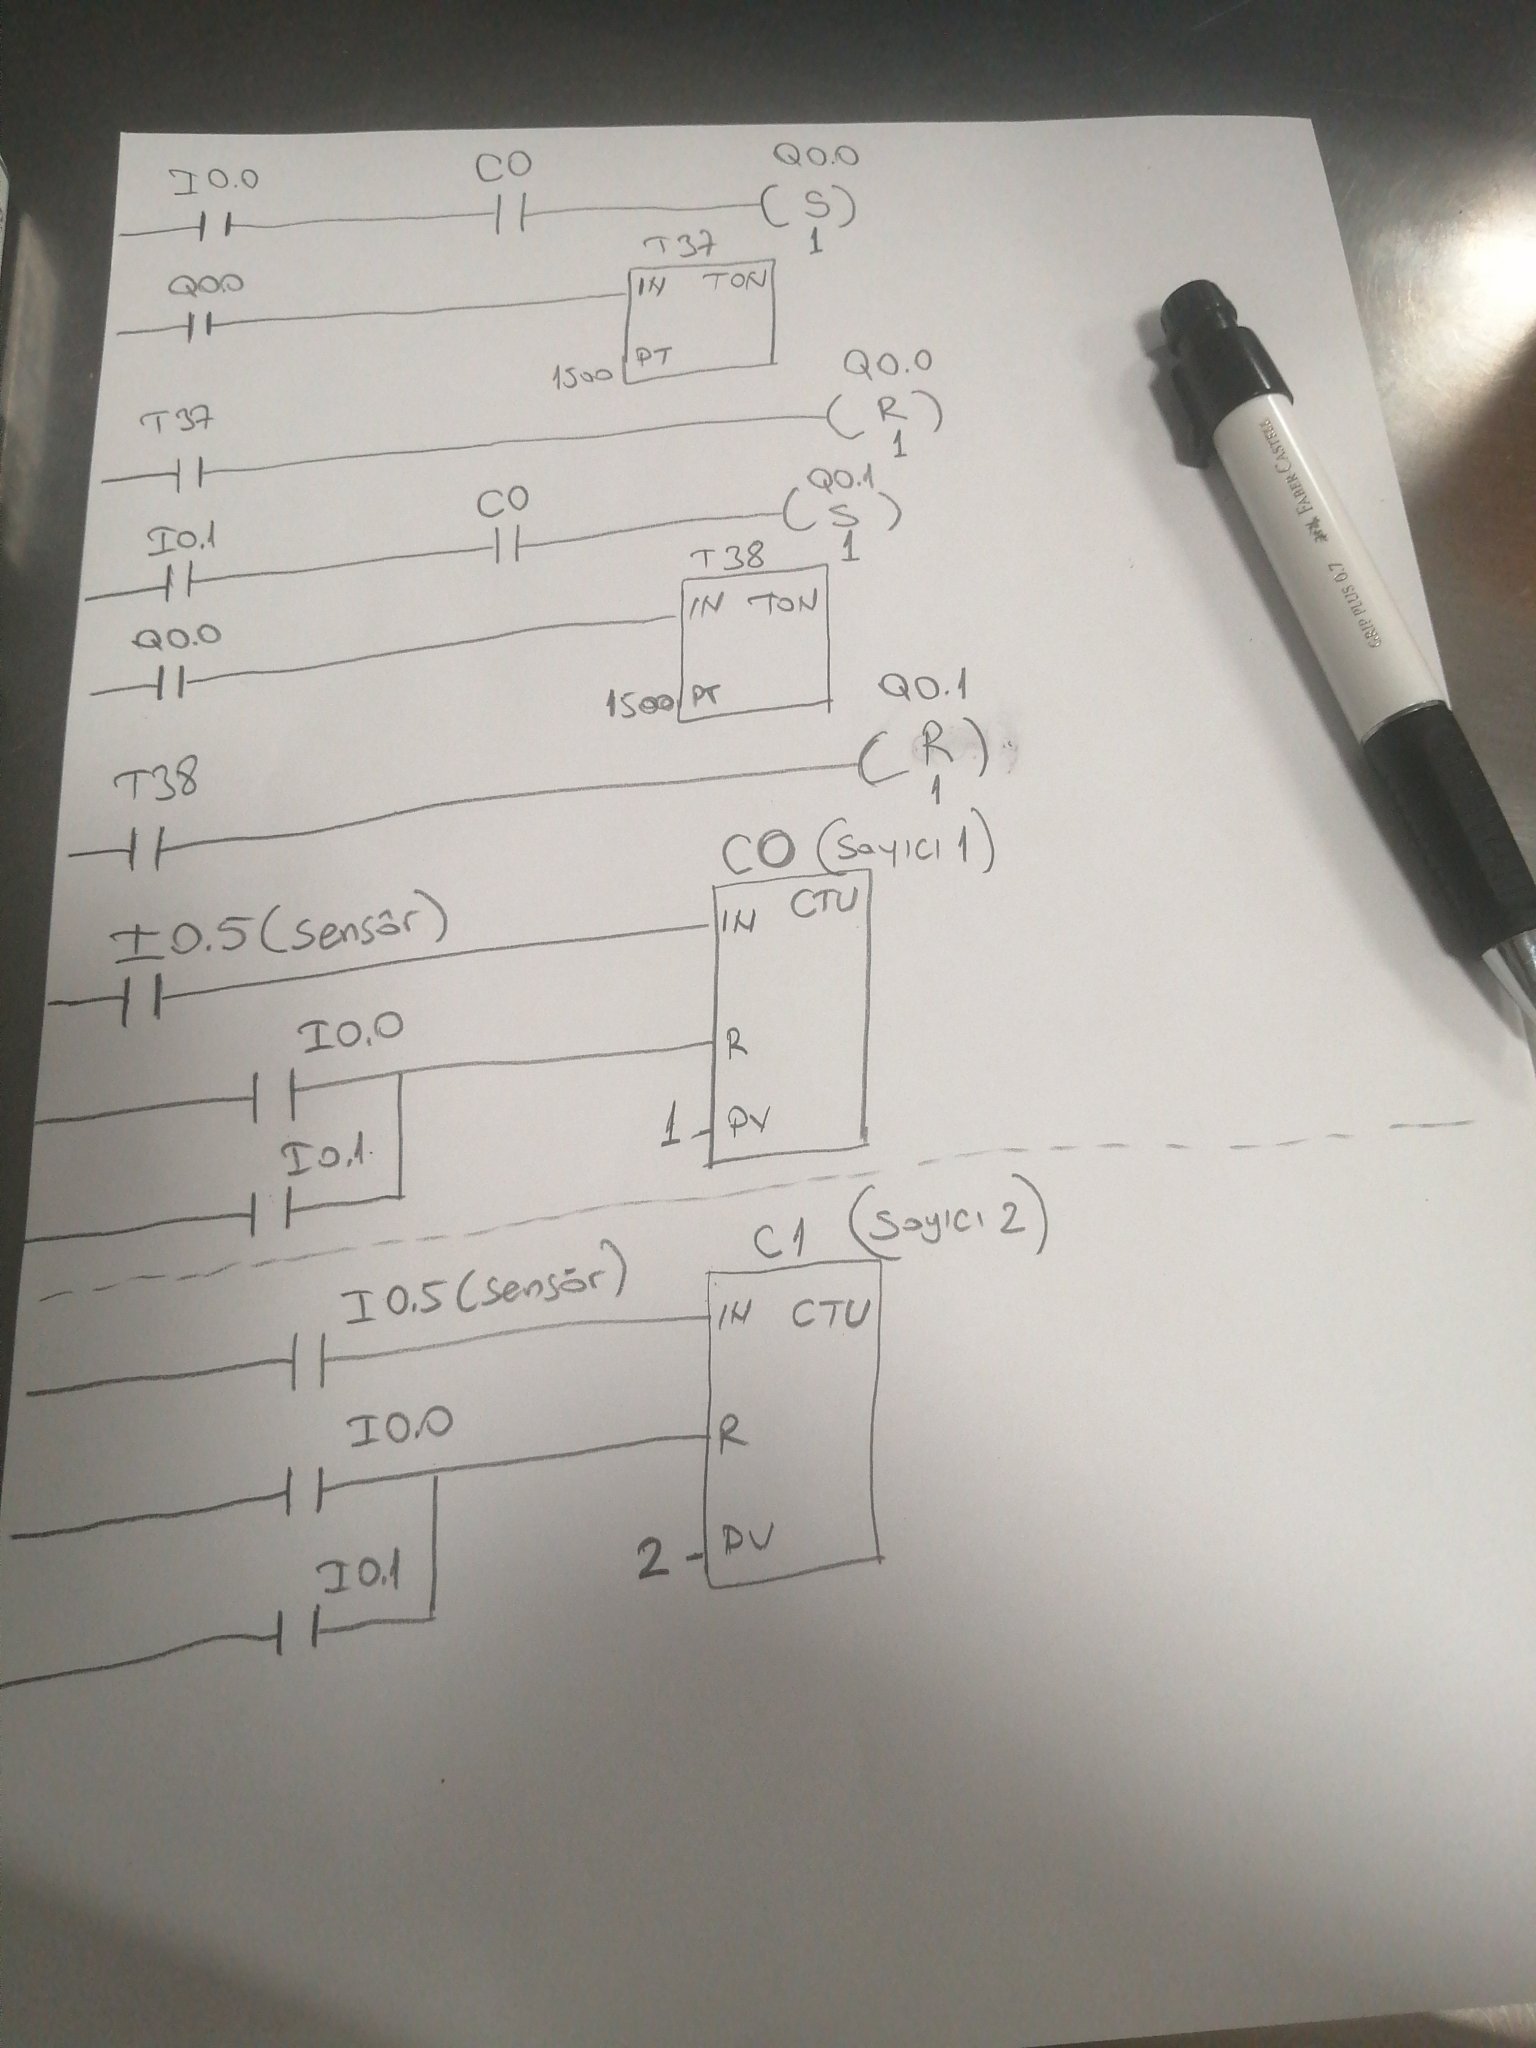 I0.0 C0 Q0.0
( S )
1
T37
Q0.0 IN TON
1500 PT
Q0.0
T37 ( R )
1
I0.1 C0 Q0.1
( S )
1
T38
Q0.0 IN TON
1500 PT
Q0.1
T38 ( R )
1
C0 (Sayıcı 1)
I0.5 (sensör) IN CTU
I0.0 R
I0.1 1 PV
C1 (Sayıcı 2)
I0.5 (sensör) IN CTU
I0.0 R
I0.1 2 PV
FABER CASTELL
GRIP PLUS 0.7